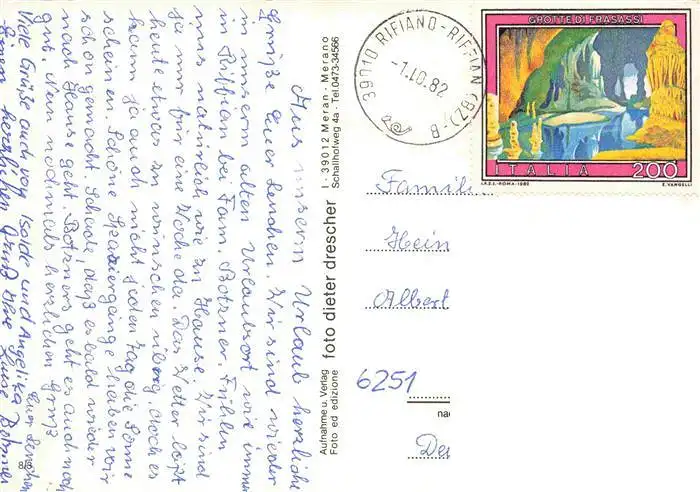 Aus unserm Urlaub herzliche
Grüße Euer Lenchen. Wir sind wieder
in unserm alten Urlaubsort wie immer
in Riffian bei Fam. Botzner. Fühlen
uns natürlich wie zu Hause. Wir sind
ja nur für eine Woche da. Das Wetter läßt
heute etwas zu wünschen übrig, doch es
kann ja auch nicht jeden Tag die Sonne
scheinen. Schöne Spaziergänge haben wir
schon gemacht. Schade, daß es bald wieder
nach Haus geht. Botzners geht es auch noch
gut. Nun nochmals herzlichen Gruß
Euer Lenchen
Viele Grüße auch von Isolde und Angelika
Einen herzlichen Gruß Ihre Luise Bohmer
8/3
Aufnahme u. Verlag
Foto ed edizione
foto dieter drescher
I - 39012 Meran - Merano
Schallhofweg 4a - Tel. 0473-34566
39010 RIFIANO-RIFFIAN (BZ) B
-1.10.82
GROTTE DI FRASASSI
ITALIA 200
I.P.Z.S.-ROMA-1982
E. VANGELLI
Famili
Hein
Albert
6251
na
De